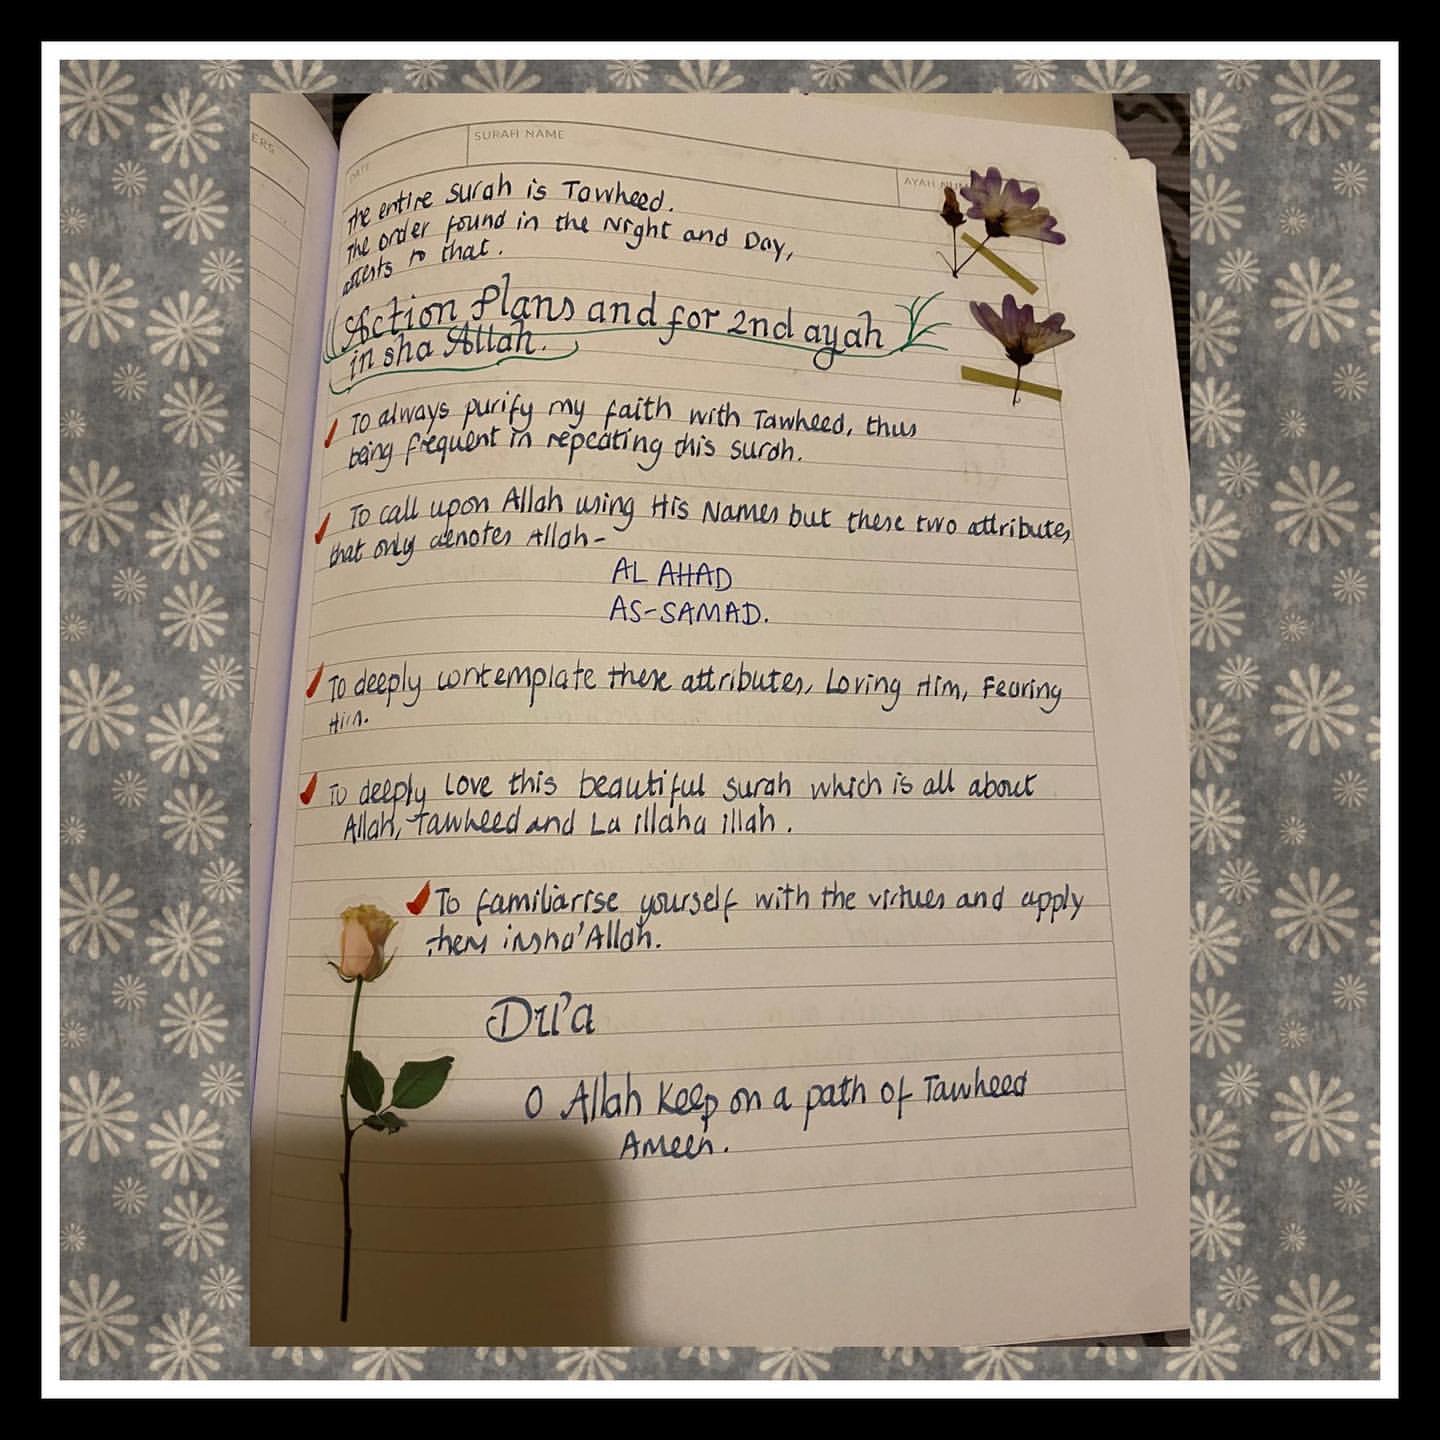 ERS
DATE
SURAH NAME
AYAH NUM
The entire surah is Tawheed.
The order found in the Night and Day,
attests to that.
Action Plans and for 2nd ayah
in sha Allah.
To always purify my faith with Tawheed, thus
being frequent in repeating this surah.
To call upon Allah using His Names but these two attributes
that only denotes Allah-
AL AHAD
AS-SAMAD.
To deeply contemplate these attributes, Loving Him, Fearing
Him.
To deeply love this beautiful surah which is all about
Allah, Tawheed and La illaha illah.
To familiarise yourself with the virtues and apply
them insha'Allah.
Du'a
O Allah Keep on a path of Tawheed
Ameen.